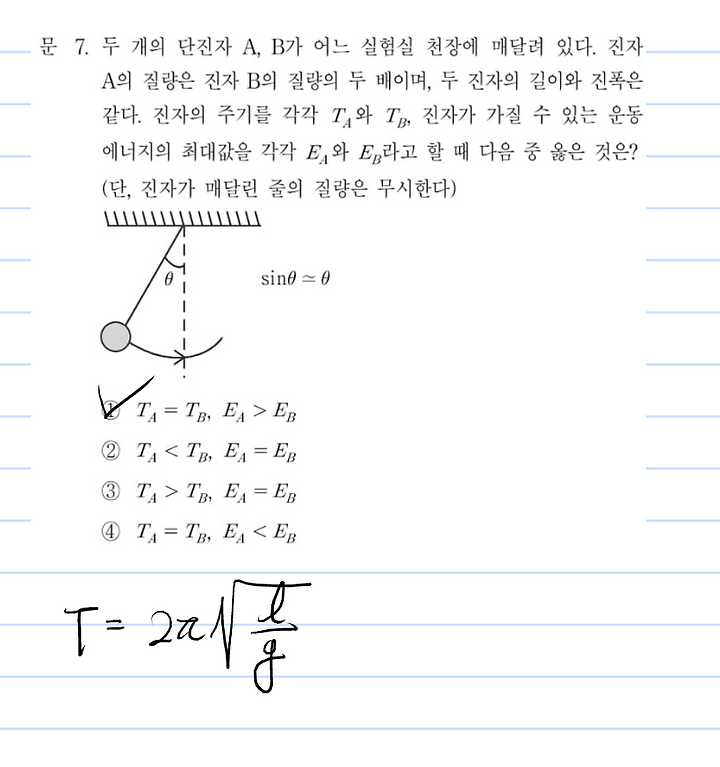 문 7. 두 개의 단진자 A, B가 어느 실험실 천장에 매달려 있다. 진자
A의 질량은 진자 B의 질량의 두 배이며, 두 진자의 길이와 진폭은
같다. 진자의 주기를 각각 T_A와 T_B, 진자가 가질 수 있는 운동
에너지의 최대값을 각각 E_A와 E_B라고 할 때 다음 중 옳은 것은?
(단, 진자가 매달린 줄의 질량은 무시한다)
θ
sinθ ≃ θ
① T_A = T_B, E_A > E_B
② T_A < T_B, E_A = E_B
③ T_A > T_B, E_A = E_B
④ T_A = T_B, E_A < E_B
T = 2π√(l/g)